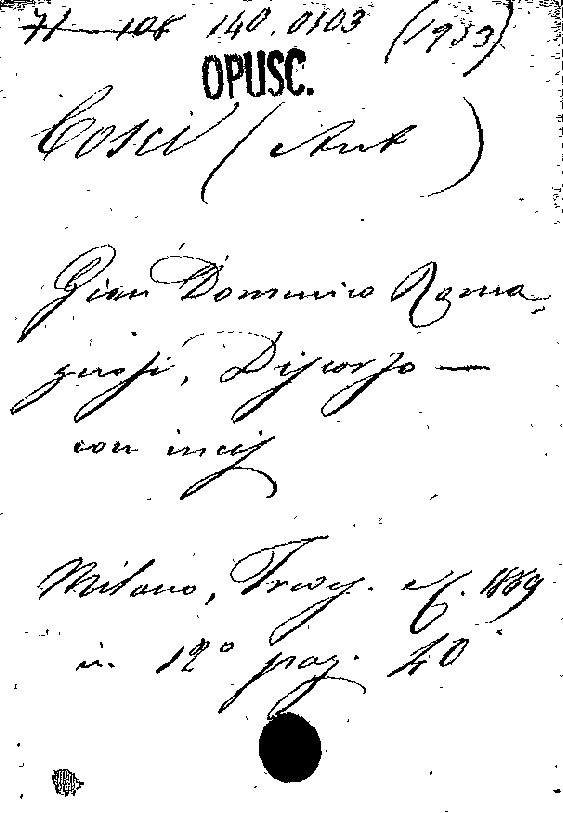 71-108 140.0303 (1933)
OPUSC.
Cosci (Ant)
Gian Domenico Roma-
gnosi, Discorso —
con incis
Milano, Treves. ed. 1889
in 12° pag. 40